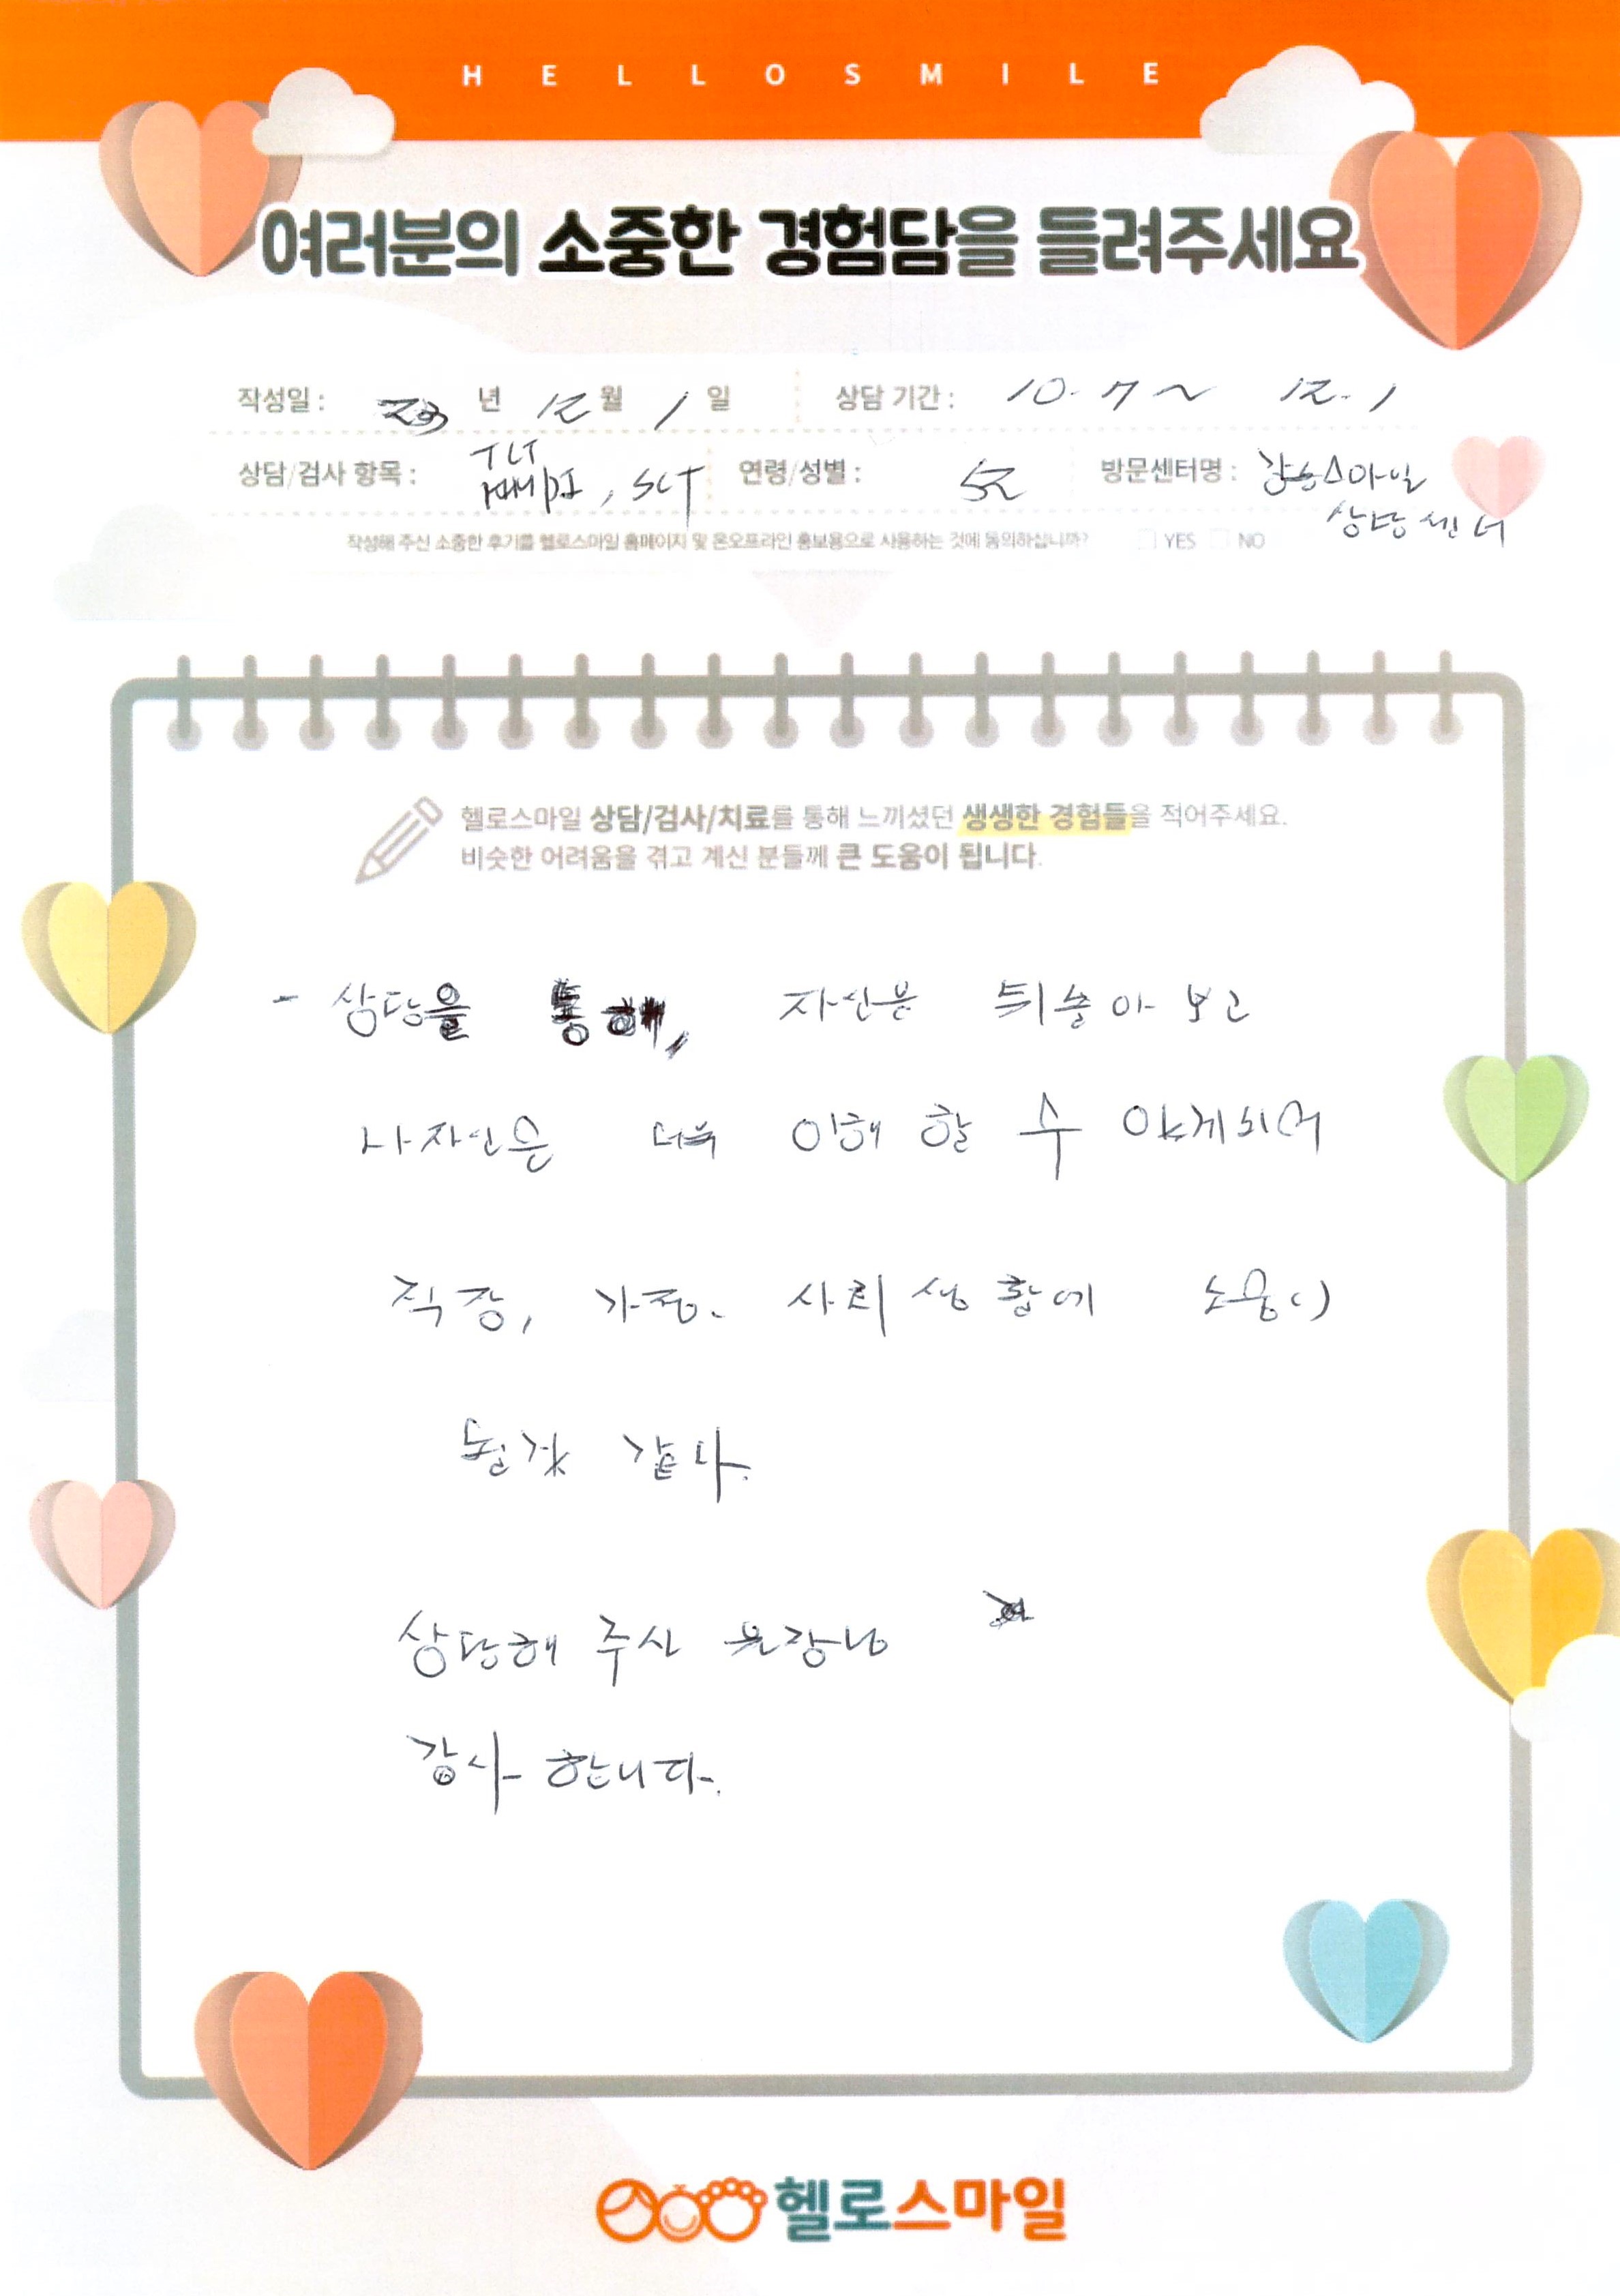 HELLOSMILE
여러분의 소중한 경험담을 들려주세요
작성일 : 23 년 12 월 1 일 상담 기간 : 10. 7 ~ 12. 1
상담/검사 항목 : TCI MMPI, SCT 연령/성별 : 52 방문센터명 : 강동스마일
상담센터
작성해 주신 소중한 후기를 헬로스마일 홈페이지 및 온오프라인 홍보용으로 사용하는 것에 동의하십니까? YES NO
헬로스마일 상담/검사/치료를 통해 느끼셨던 생생한 경험들을 적어주세요.
비슷한 어려움을 겪고 계신 분들께 큰 도움이 됩니다.
- 상담을 통해, 자신을 뒤돌아 보고
나자신을 더욱 이해 할 수 있게되어
직장, 가정, 사회생활에 도움이
된것 같다.
상담해 주신 원장님
감사 합니다.
헬로스마일